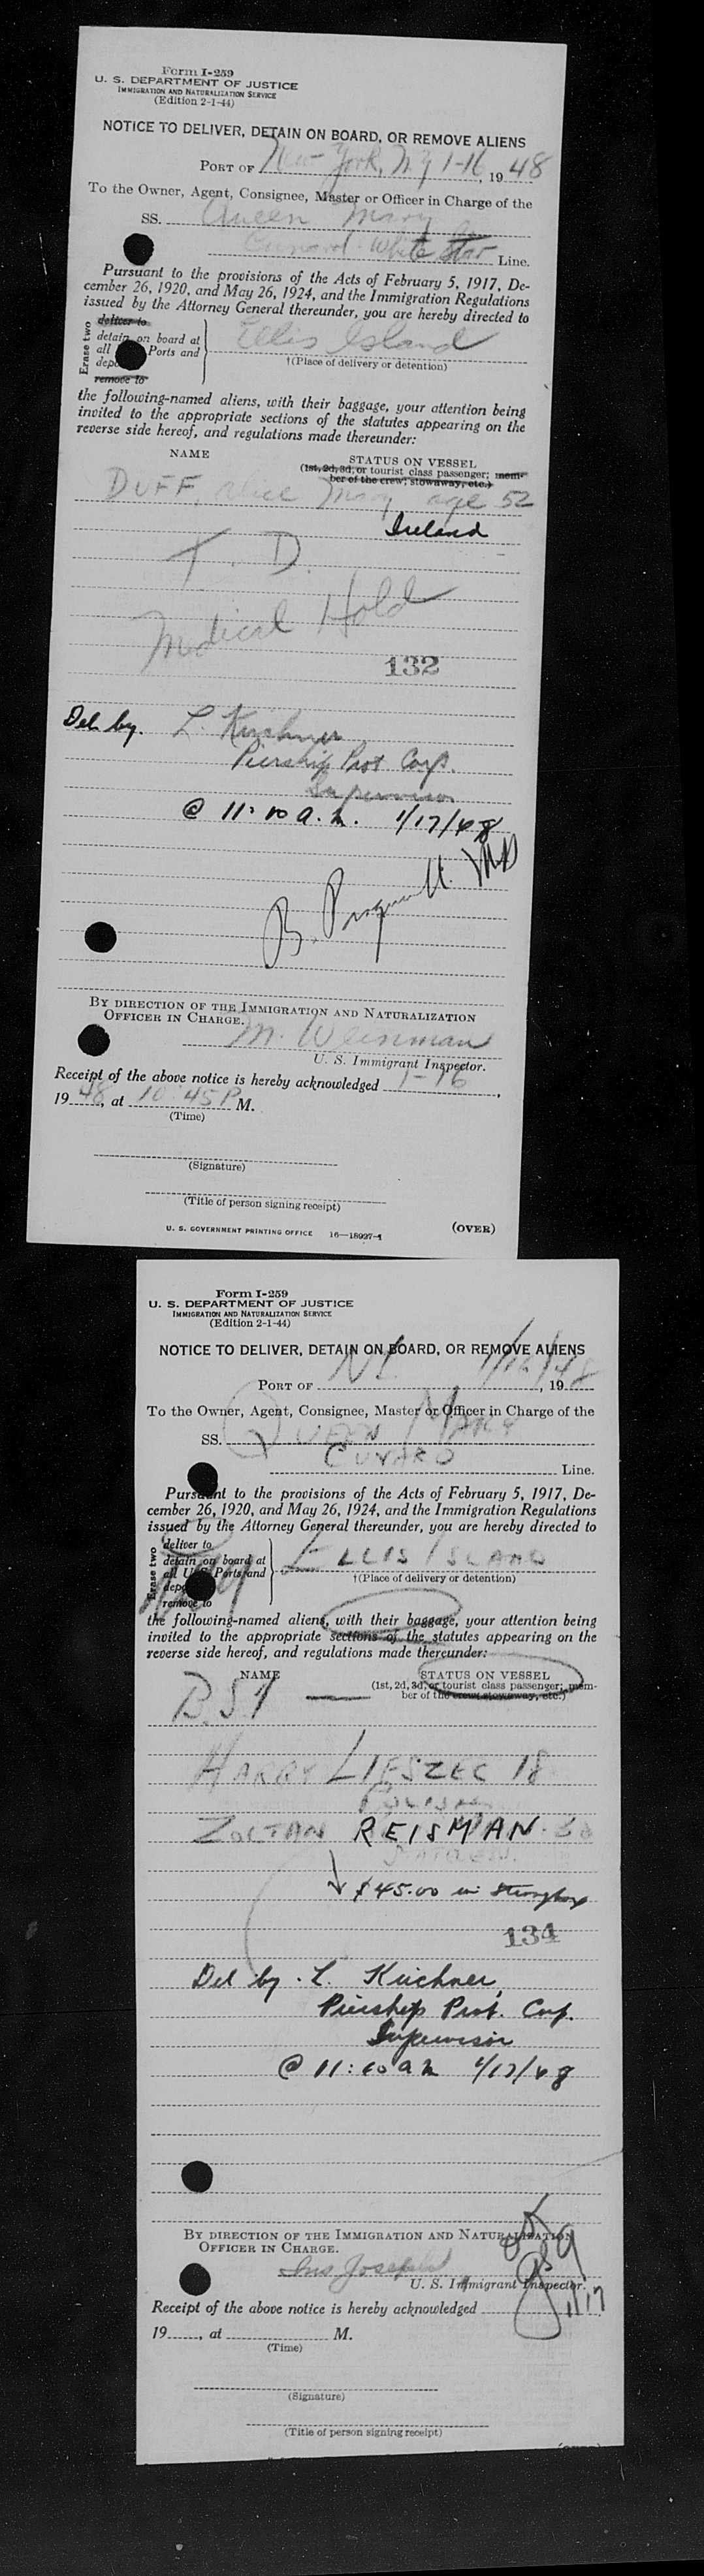 Form I-259
U. S. DEPARTMENT OF JUSTICE
IMMIGRATION AND NATURALIZATION SERVICE
(Edition 2-1-44)
NOTICE TO DELIVER, DETAIN ON BOARD, OR REMOVE ALIENS
PORT OF New York, NY 1-16, 1948
To the Owner, Agent, Consignee, Master or Officer in Charge of the
SS. Queen Mary
Cunard White Star Line.
Pursuant to the provisions of the Acts of February 5, 1917, De-
cember 26, 1920, and May 26, 1924, and the Immigration Regulations
issued by the Attorney General thereunder, you are hereby directed to
Erase two
deliver to
detain on board at
all Ports and
remove to
Ellis Island
†(Place of delivery or detention)
the following-named aliens, with their baggage, your attention being
invited to the appropriate sections of the statutes appearing on the
reverse side hereof, and regulations made thereunder:
NAME STATUS ON VESSEL
(1st, 2d, 3d, or tourist class passenger; mem-
ber of the crew; stowaway, etc.)
DUFF, Alice Mary age 52
Ireland
T. D.
Medical Hold
132
Del by. L. Kirchner
Piership Prot Corp.
Supervisor
@ 11:10 a.m. 1/17/48
B. MD
BY DIRECTION OF THE IMMIGRATION AND NATURALIZATION
OFFICER IN CHARGE.
M. Weinman
U. S. Immigrant Inspector.
Receipt of the above notice is hereby acknowledged 1-16,
1948, at 10:45 P M.
(Time)
(Signature)
(Title of person signing receipt)
U. S. GOVERNMENT PRINTING OFFICE 16—18997-1 (OVER)
Form I-259
U. S. DEPARTMENT OF JUSTICE
IMMIGRATION AND NATURALIZATION SERVICE
(Edition 2-1-44)
NOTICE TO DELIVER, DETAIN ON BOARD, OR REMOVE ALIENS
PORT OF NY 1/16/48, 19
To the Owner, Agent, Consignee, Master or Officer in Charge of the
SS. QUEEN MARY
CUNARD Line.
Pursuant to the provisions of the Acts of February 5, 1917, De-
cember 26, 1920, and May 26, 1924, and the Immigration Regulations
issued by the Attorney General thereunder, you are hereby directed to
Erase two
deliver to
detain on board at
all U. S. Ports and
remove to
ELLIS ISLAND
†(Place of delivery or detention)
the following-named aliens, with their baggage, your attention being
invited to the appropriate sections of the statutes appearing on the
reverse side hereof, and regulations made thereunder:
NAME STATUS ON VESSEL
(1st, 2d, 3d, or tourist class passenger; mem-
ber of the crew; stowaway, etc.)
B.S.I —
HARRY LIESZEC 18
POLISH
ZOLTAN REISMAN
↓ $45.00 in strongbox
134
Del by. L. Kirchner,
Piership Prot. Corp.
Supervisor
@ 11:10 am 1/17/48
BY DIRECTION OF THE IMMIGRATION AND NATURALIZATION
OFFICER IN CHARGE.
Ins Joseph
U. S. Immigrant Inspector.
OK
1/17
Receipt of the above notice is hereby acknowledged
19, at M.
(Time)
(Signature)
(Title of person signing receipt)